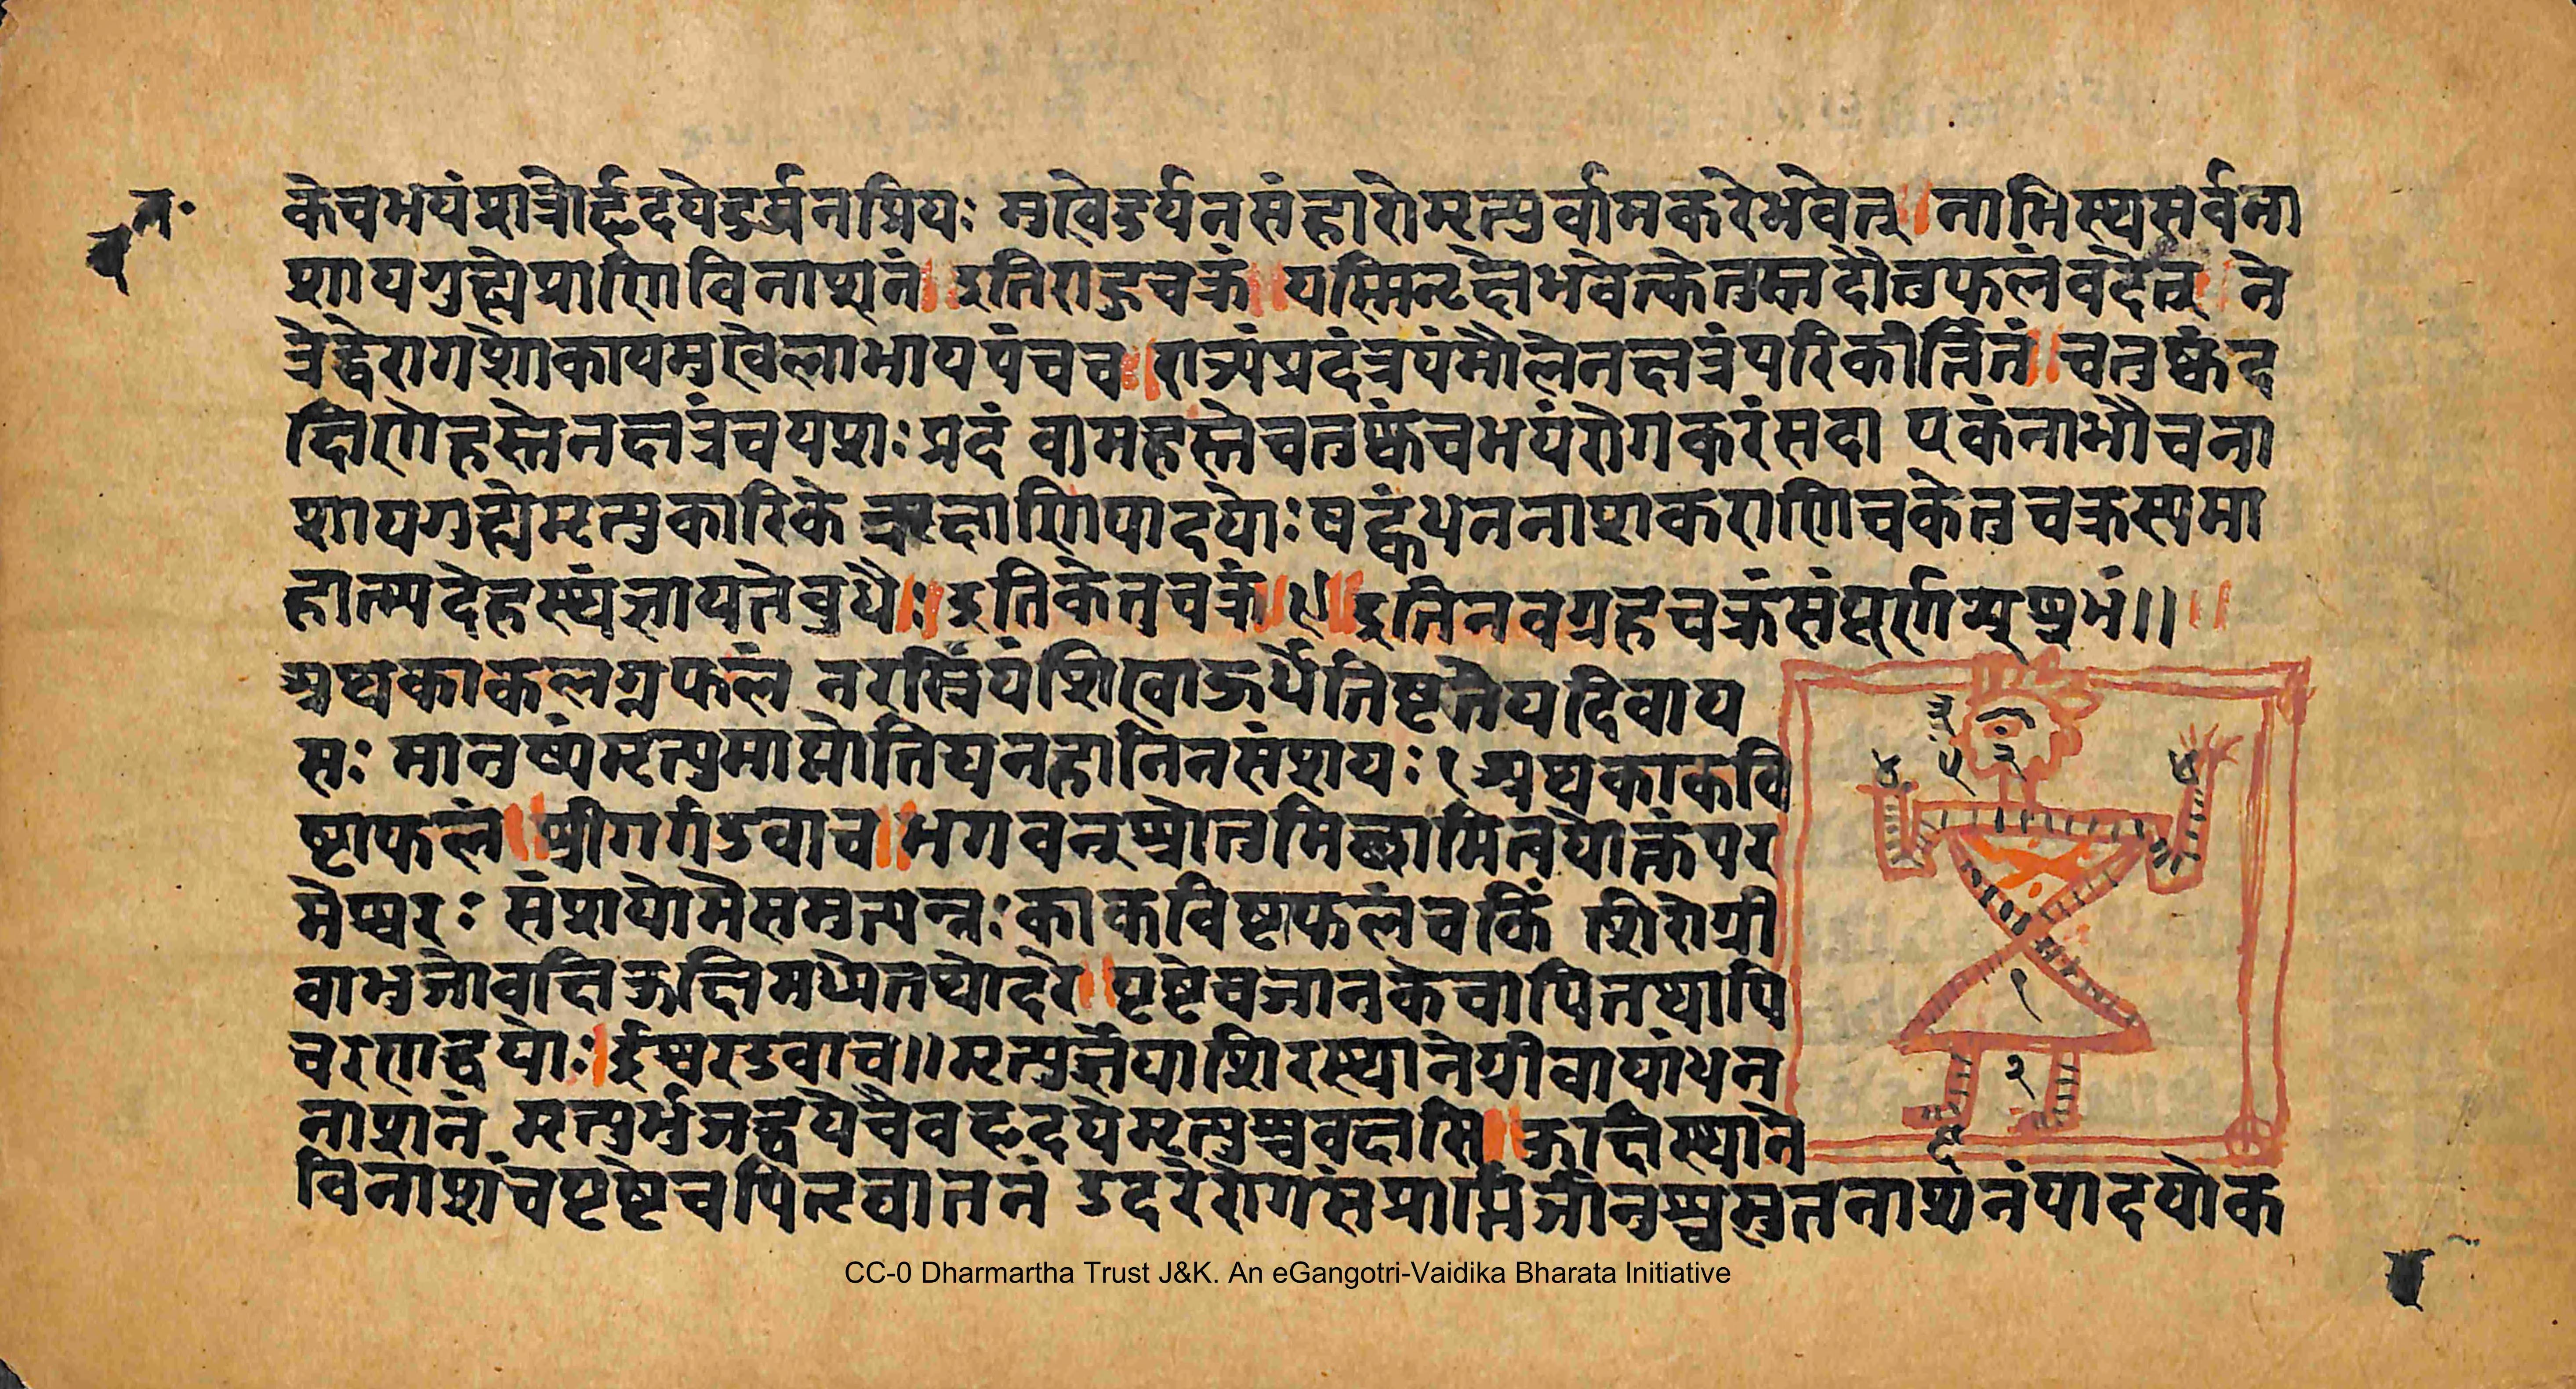 केचभयंशत्रोर्हृदयेदुर्जनप्रियः मुखेदुर्यनसंहारोमृत्युर्वामकरेभवेत् ॥ नाभिस्थसर्वना
शायगुह्येप्राणिविनाशनं ॥ इतिराहुचक्रं ॥ यस्मिनृक्षेभवेत्केतुस्तदोतुफलंवदेत् ॥ ने
त्रेद्वेरागशोकायमुखेलाभायपंचच ॥ राज्यंप्रदंत्रयंमौलेनक्षत्रंपरिकीर्त्तितं ॥ चतुष्कंद
क्षिणेहस्तेनक्षत्रंचयशःप्रदं वामहस्तेचतुष्कंचभयंरोगकरंसदा एकंनाभौचना
शायगुह्येमृत्युकारिके ऋक्षाणिपादयोः षट्कंधननाशकराणिचकेतुचक्रस्यमा
हात्म्यदेहस्थंज्ञायतेबुधैः ॥ इतिकेतुचक्रं ॥९॥ इतिनवग्रहचक्रंसंपूर्णम्शुभं ॥ ॥
अथकाकलग्नफलं नरस्त्रियंशिखोऊर्धेतिष्टतेयदिवाय
सः मानुष्यंमृत्युमाप्नोतिधनहानिनसंशयः १ अथकाकवि
ष्टाफलं ॥ श्रीगर्गउवाच ॥ भगवन्श्रोतुमिच्छामित्वयोक्तंपर
मेश्वरः संशयोमेसमुत्पन्नःकाकविष्टाफलंचकिं शिरोग्री
वाभुजोवक्षिऊक्षिमध्येतथोदरे ॥ पृष्टेचजानुकेचापितथापि
चरणद्वयोः। ईश्वरउवाच ॥ मृत्युर्ज्ञेयाशिरस्थानेग्रीवायांधन
नाशनं मृत्युर्भुजद्वयेचैवहृदयेमृत्युश्चवक्षसि ॥ ऊक्षिस्थाने
विनाशंचपृष्टेचपितृघातनं उदरेरोगसंप्राप्तिर्जानुश्चसुतनाशनंपादयोक
CC-0 Dharmartha Trust J&K. An eGangotri-Vaidika Bharata Initiative